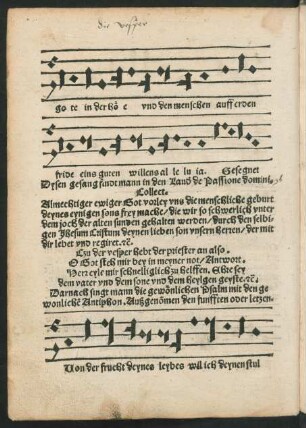 die vesper
go te in der hô e vnd den menschen auff erden
fride eins guten willens al le lu ia. Gesegnet
Dysen gesang findt mann in den Laud de Passione domini.
Collect.
Almechtiger ewiger Got vorley vns die menschliche geburt
deynes eynigen sons frey mache/ die wir so schwerlich vnter
dem joch der alten sunden gehalten werden/ durch den selbi-
gen Jhesum Cristum deynen lieben son vnsern herren/ der mit
dir lebet vnd regiret. ꝛc.
Czu der vesper hebt der priester an also.
O Got sich mir bey in meyner not/ Antwort.
Herr eyle mir schnelligklich zu helffen. Ehre sey
dem vater vnd dem sone vnd dem heylgen geyste. ꝛc.
Darnach singt mann die gewönlichen Psalm mit den ge
wonliche Antiphon. Außgenömen den funfften oder letzen.
Von der frucht deynes leybes wil ich deynen stul